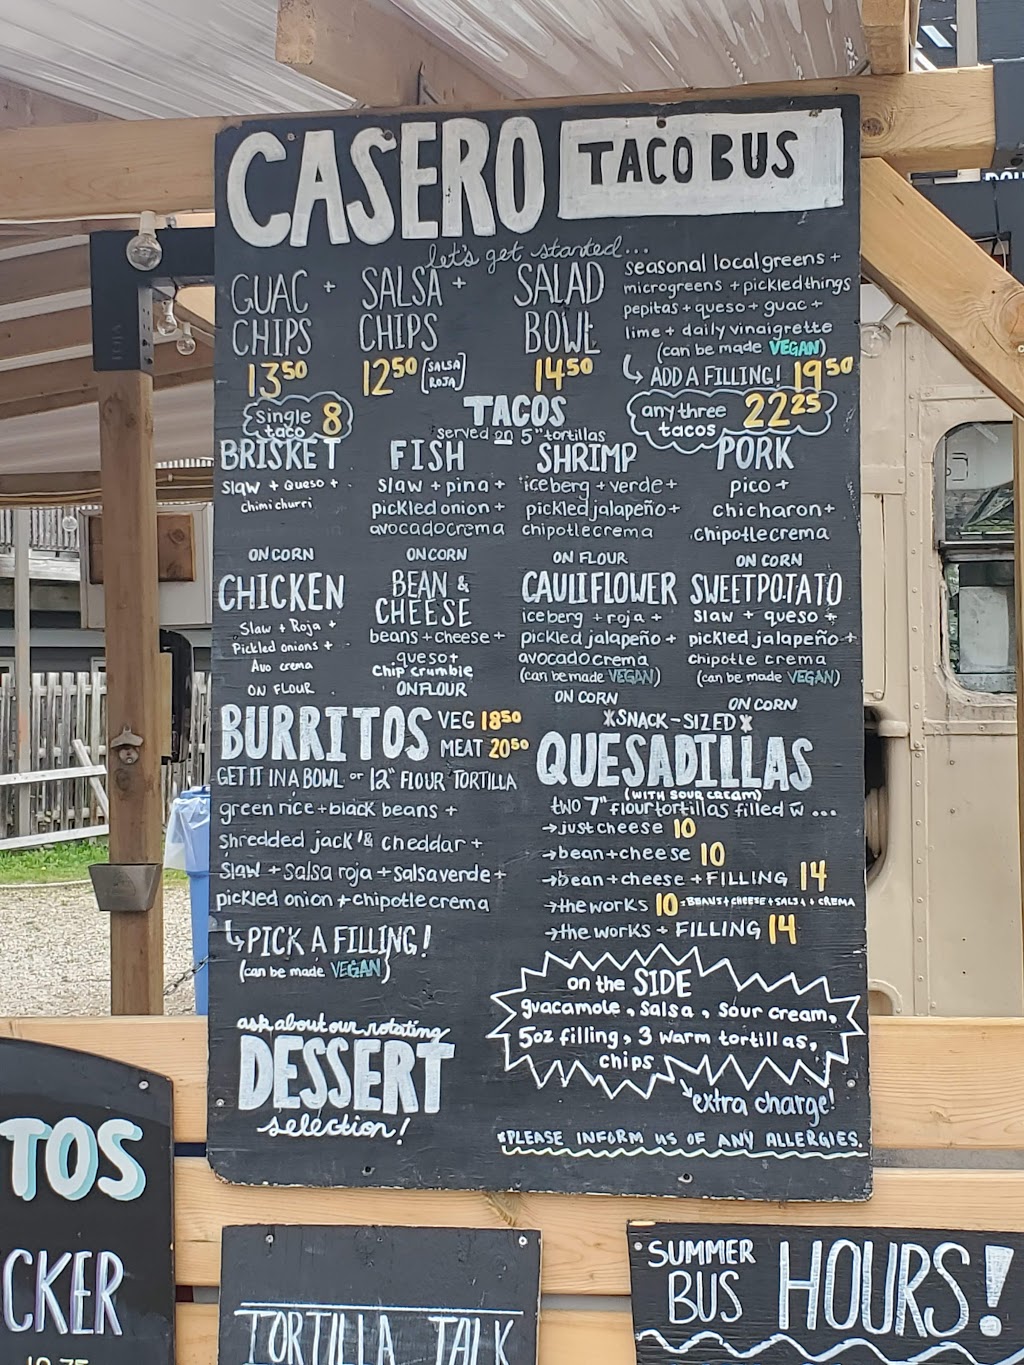 CASERO TACO BUS
let's get started...
GUAC + CHIPS
13⁵⁰
SALSA + CHIPS
12⁵⁰ [SALSA ROJA]
SALAD BOWL
14⁵⁰
seasonal local greens +
microgreens + pickled things
pepitas + queso + guac +
lime + daily vinaigrette
(can be made VEGAN)
ADD A FILLING! 19⁵⁰
single taco 8
TACOS
served on 5" tortillas
any three tacos 22²⁵
BRISKET
slaw + queso +
chimichurri
ON CORN
FISH
slaw + pina +
pickled onion +
avocado crema
ON CORN
SHRIMP
iceberg + verde +
pickled jalapeño +
chipotle crema
ON FLOUR
PORK
pico +
chicharon +
chipotle crema
ON CORN
CHICKEN
Slaw + Roja +
Pickled onions +
Avo crema
ON FLOUR
BEAN &
CHEESE
beans + cheese +
queso +
chip crumble
ON FLOUR
CAULIFLOWER
iceberg + roja +
pickled jalapeño +
avocado crema
(can be made VEGAN)
ON CORN
SWEET POTATO
slaw + queso +
pickled jalapeño +
chipotle crema
(can be made VEGAN)
ON CORN
BURRITOS VEG 18⁵⁰
MEAT 20⁵⁰
GET IT IN A BOWL or 12" FLOUR TORTILLA
green rice + black beans +
shredded jack '& cheddar +
slaw + salsa roja + salsa verde +
pickled onion + chipotle crema
PICK A FILLING!
(can be made VEGAN)
SNACK-SIZED
QUESADILLAS
(WITH SOUR CREAM)
two 7" flour tortillas filled w̄ ...
→just cheese 10
→bean + cheese 10
→bean + cheese + FILLING 14
→the works 10 = BEANS + CHEESE + SALSA + CREMA
→the works + FILLING 14
ask about our rotating
DESSERT
selection!
on the SIDE
guacamole, salsa, sour cream,
5oz filling, 3 warm tortillas,
chips
extra charge!
*PLEASE INFORM US OF ANY ALLERGIES.
TOS
CKER
TORTILLA TALK
SUMMER BUS HOURS!